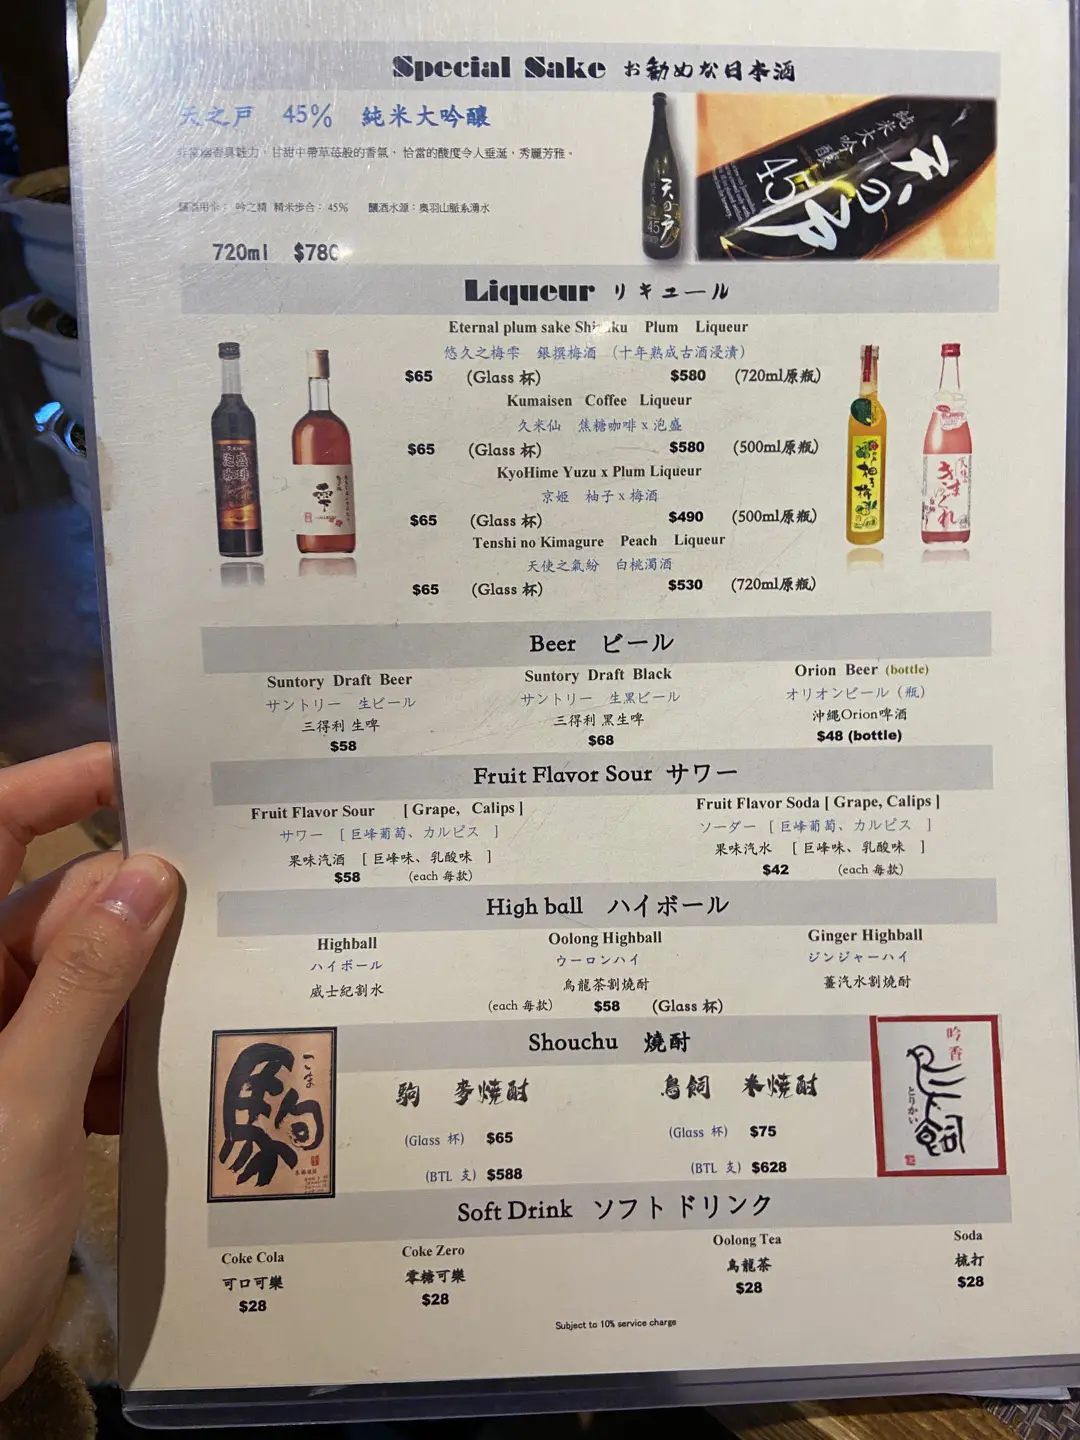 Special Sake お勧めな日本酒
天之戸 45% 純米大吟醸
甘甜中帶草苺般的香氣、恰當的酸度令人垂涎，秀麗芳雅。
吟之精 精米歩合：45% 釀酒水源：奥羽山脈系湧水
720ml $780
天の戸
純米大吟醸
45
天の戸
45
Liqueur リキュール
Eternal plum sake Plum Liqueur
悠久之梅雫 銀撰梅酒 （十年熟成古酒浸漬）
$65 (Glass 杯) $580 (720ml原瓶)
Kumaisen Coffee Liqueur
久米仙 焦糖咖啡 x 泡盛
$65 (Glass 杯) $580 (500ml原瓶)
KyoHime Yuzu x Plum Liqueur
京姬 柚子 x 梅酒
$65 (Glass 杯) $490 (500ml原瓶)
Tenshi no Kimagure Peach Liqueur
天使之氣紛 白桃濁酒
$65 (Glass 杯) $530 (720ml原瓶)
泡盛
珈琲
雫
きまぐれ
Beer ビール
Suntory Draft Beer
サントリー 生ビール
三得利 生啤
$58
Suntory Draft Black
サントリー 生黒ビール
三得利 黑生啤
$68
Orion Beer (bottle)
オリオンビール（瓶）
沖縄Orion啤酒
$48 (bottle)
Fruit Flavor Sour サワー
Fruit Flavor Sour [ Grape, Calips ]
サワー [ 巨峰葡萄、カルピス ]
果味汽酒 [ 巨峰味、乳酸味 ]
$58 (each 每款)
Fruit Flavor Soda [ Grape, Calips ]
ソーダー [ 巨峰葡萄、カルピス ]
果味汽水 [ 巨峰味、乳酸味 ]
$42 (each 每款)
High ball ハイボール
Highball
ハイボール
威士紀割水
Oolong Highball
ウーロンハイ
烏龍茶割燒酎
Ginger Highball
ジンジャーハイ
薑汽水割燒酎
(each 每款) $58 (Glass 杯)
Shouchu 燒酎
駒
こま
駒 麥燒酎
(Glass 杯) $65
(BTL 支) $588
鳥飼 米燒酎
(Glass 杯) $75
(BTL 支) $628
吟香
鳥飼
とりかい
Soft Drink ソフトドリンク
Coke Cola
可口可樂
$28
Coke Zero
零糖可樂
$28
Oolong Tea
烏龍茶
$28
Soda
梳打
$28
Subject to 10% service charge